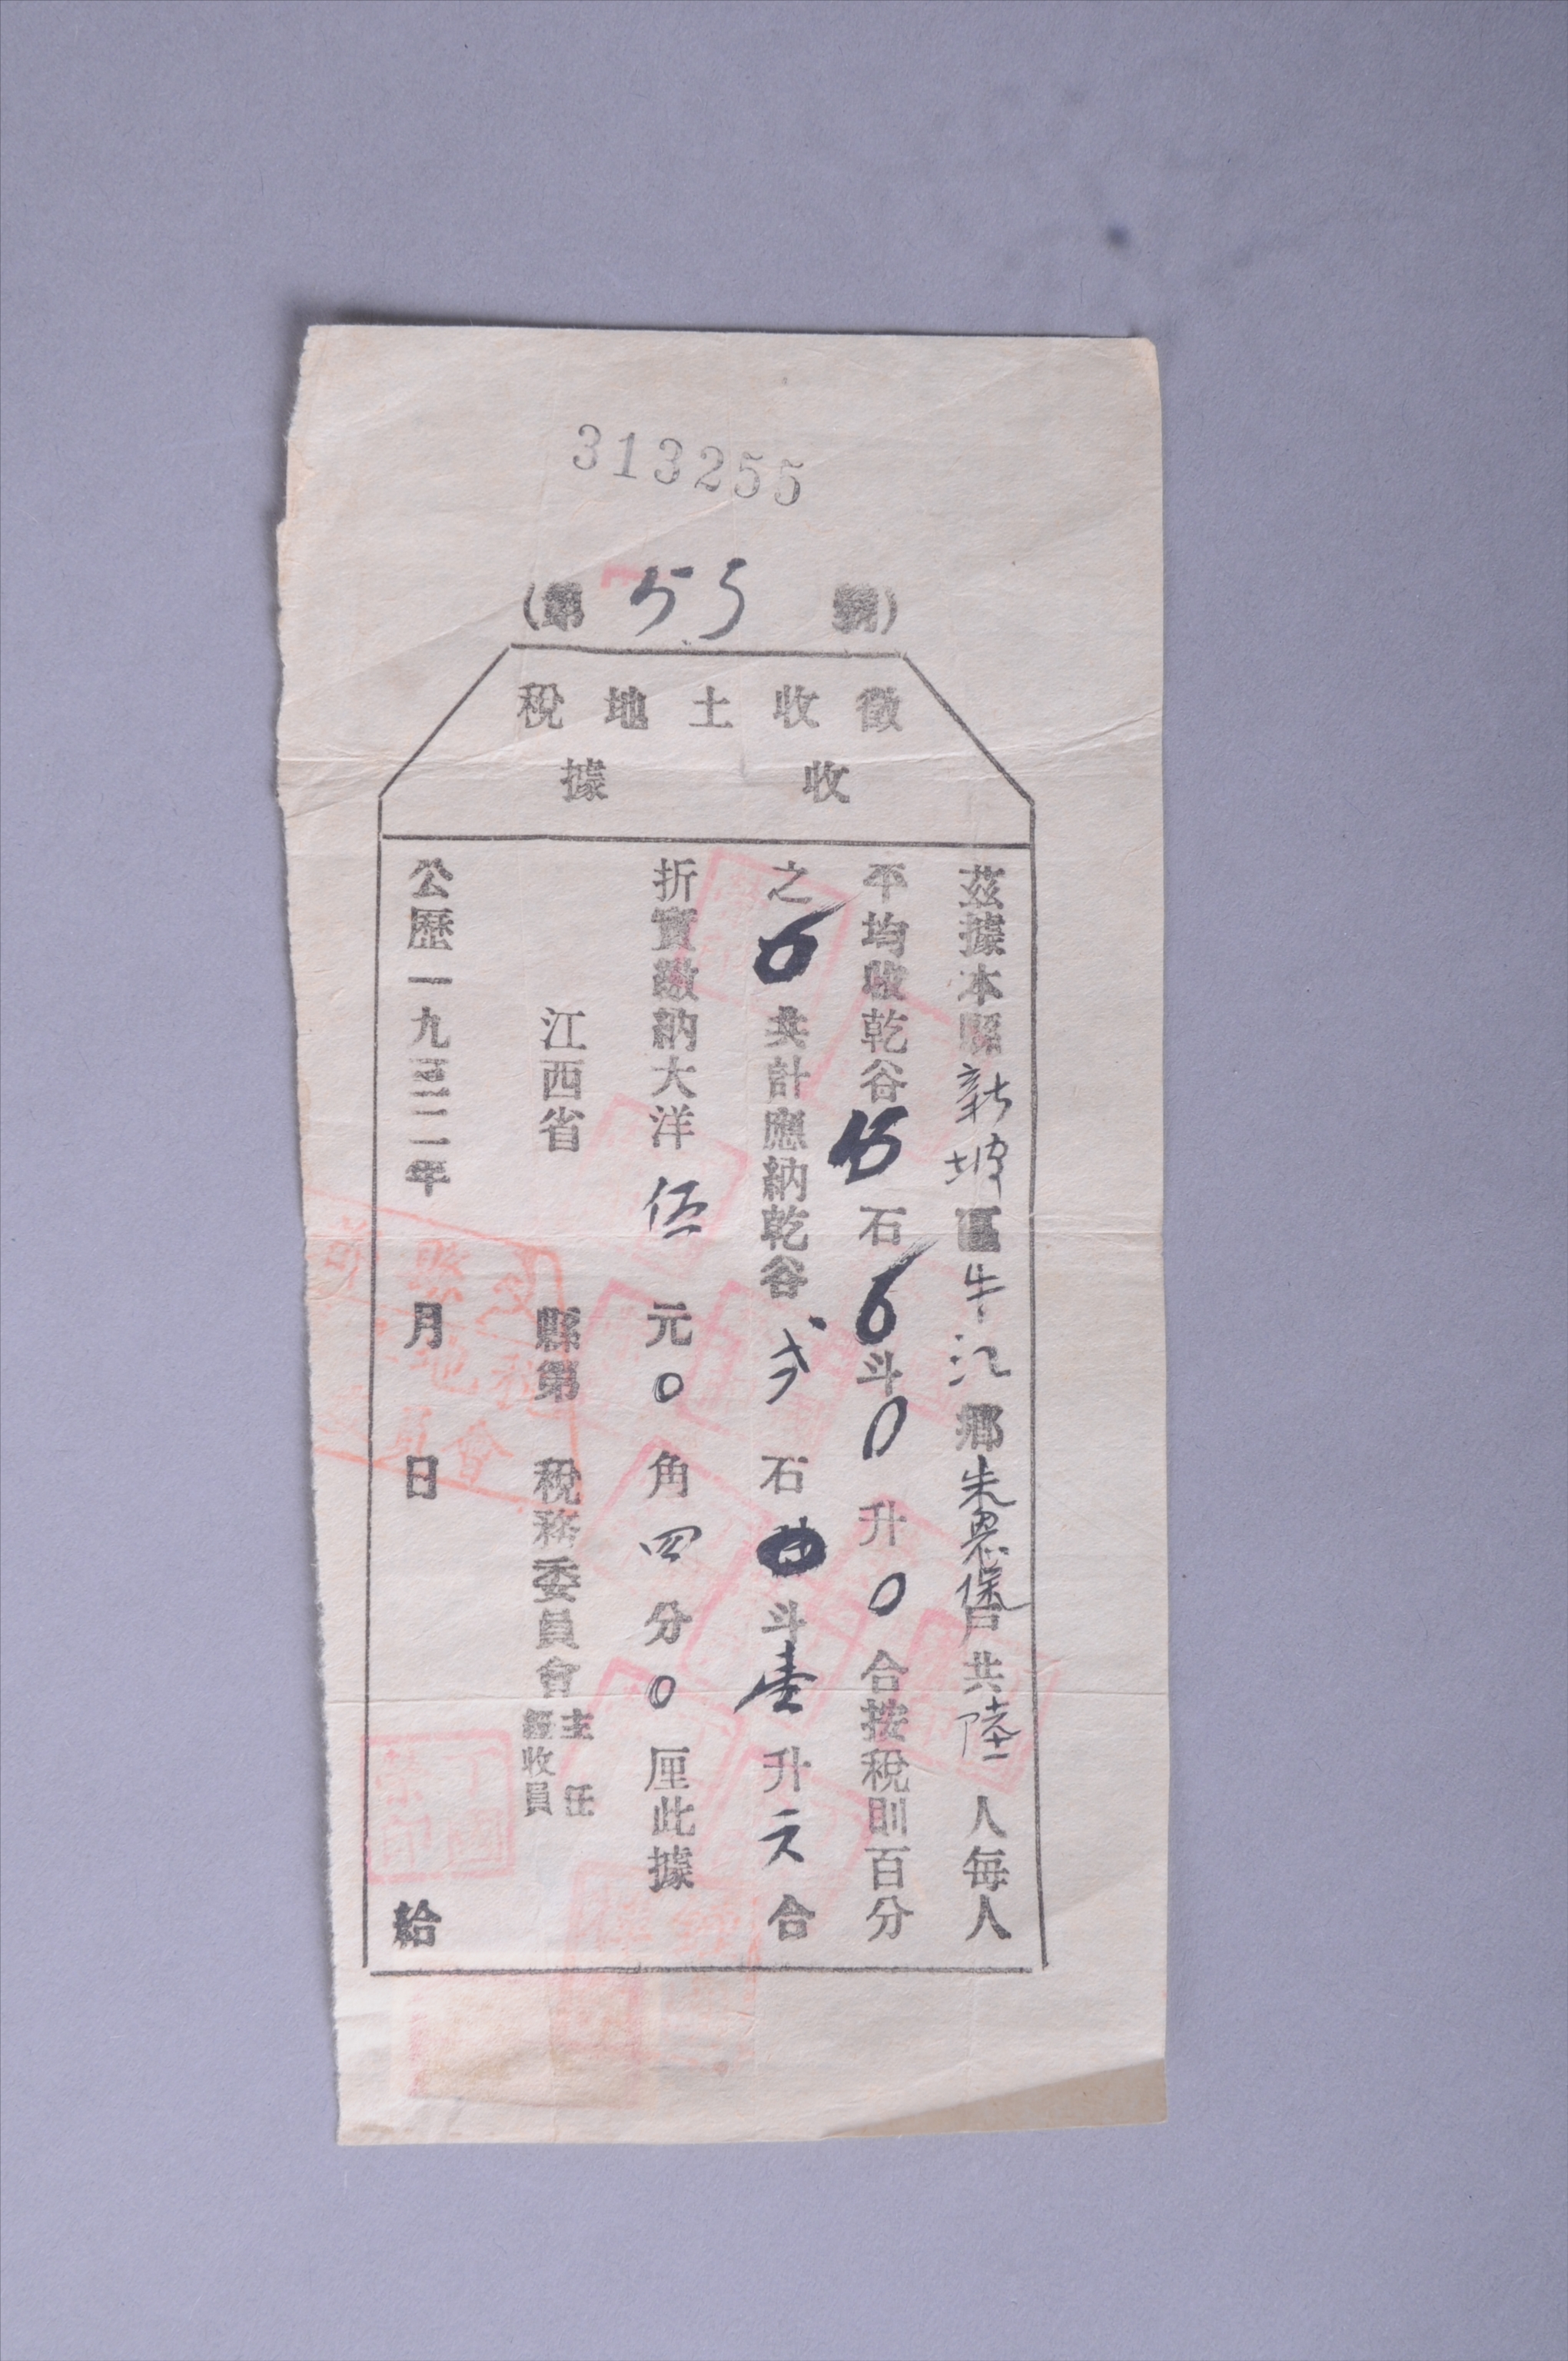 313255
(第 55 號)
徵收土地稅
收據
茲據本縣新坡區牛江鄉朱恩保戶共陸人每人
平均收乾谷 石6斗0升0合按稅則百分
之6共計應納乾谷弍石 斗壹升六合
折實繳納大洋伍元0角四分0厘此據
江西省 縣第 稅務委員會主任
經收員
公歷一九三二年 月 日 給